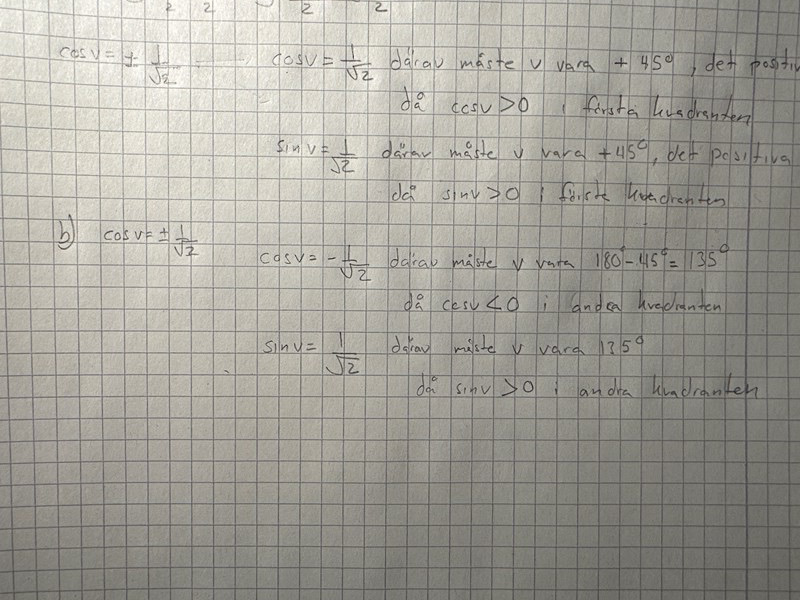 2 2 2 2
cosv = ± 1/√2 cosv = 1/√2 därav måste v vara + 45°, det positiv
då cosv > 0 i första kvadranten
sinv = 1/√2 därav måste v vara +45°, det positiva
då sinv > 0 i förste kvadranten
b) cosv = ± 1/√2
cosv = - 1/√2 därav måste v vara 180° - 45° = 135°
då cosv < 0 i andra kvadranten
sinv = 1/√2 därav måste v vara 135°
då sinv > 0 i andra kvadranten